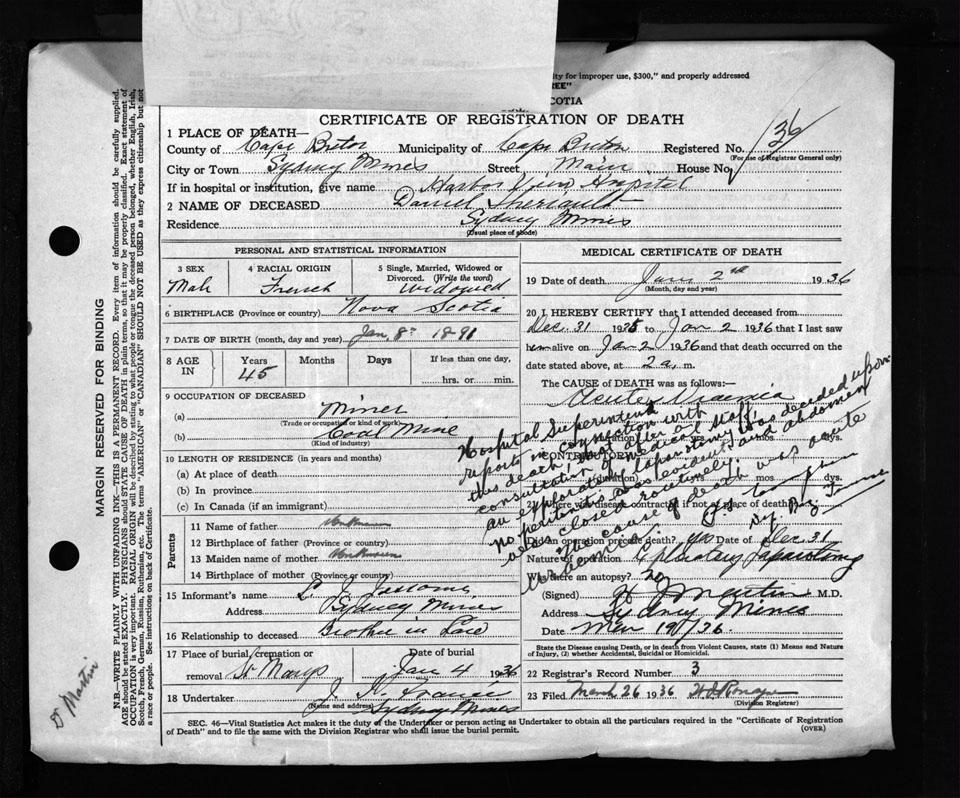 ity for improper use, $300," and properly addressed
REE"
SCOTIA
CERTIFICATE OF REGISTRATION OF DEATH
1 PLACE OF DEATH—
County of Cape Breton Municipality of Cape Breton Registered No. 36
(For use of Registrar General only)
City or Town Sydney Mines Street Main House No.
If in hospital or institution, give name Harbor View Hospital
2 NAME OF DECEASED Daniel Theriault
Residence Sydney Mines
(Usual place of abode)
PERSONAL AND STATISTICAL INFORMATION
3 SEX
Male
4 RACIAL ORIGIN
French
5 Single, Married, Widowed or Divorced. (Write the word)
Widowed
6 BIRTHPLACE (Province or country) Nova Scotia
7 DATE OF BIRTH (month, day and year) Jan 8th 1891
8 AGE IN
Years Months Days If less than one day,
45 hrs. or min.
9 OCCUPATION OF DECEASED
(a) Miner
(Trade or occupation or kind of work)
(b) Coal Mine
(Kind of industry)
10 LENGTH OF RESIDENCE (in years and months)
(a) At place of death
(b) In province
(c) In Canada (if an immigrant)
Parents
11 Name of father
12 Birthplace of father (Province or country)
13 Maiden name of mother
14 Birthplace of mother (Province or country)
15 Informant's name
Address Sydney Mines
16 Relationship to deceased Brother in Law
17 Place of burial, cremation or removal St Marys
Date of burial
Jan 4 1936
18 Undertaker J.
(Name and address) Sydney Mines
MEDICAL CERTIFICATE OF DEATH
19 Date of death 2nd 1936
(Month, day and year)
20 I HEREBY CERTIFY that I attended deceased from
Dec. 31 1935 to Jan 2 1936 that I last saw
him alive on Jan 2 1936 and that death occurred on the
date stated above, at 2 a. m.
The CAUSE of DEATH was as follows:
Acute Uraemia
Hospital Superintend
reports in connection with
this death, that after
consultation of medical staff,
an exploratory laparotomy was decided upon
no peritonitis was evident, and abdomen
was closed routinely.
The cause of death was acute
Uraemia
Did an operation precede death? yes Date of Dec. 31
Nature of operation Exploratory Laparotomy
Was there an autopsy? no
(Signed) H Martin M.D.
Address Sydney Mines
Date Mar 19/36.
State the Disease causing Death, or in death from Violent Causes, state (1) Means and Nature of Injury, (2) whether Accidental, Suicidal or Homicidal.
22 Registrar's Record Number 3
23 Filed March 26 1936
(Division Registrar)
SEC. 46—Vital Statistics Act makes it the duty of the Undertaker or person acting as Undertaker to obtain all the particulars required in the "Certificate of Registration
of Death" and to file the same with the Division Registrar who shall issue the burial permit.
(OVER)
MARGIN RESERVED FOR BINDING
N.B.—WRITE PLAINLY WITH UNFADING INK—THIS IS A PERMANENT RECORD. Every item of information should be carefully supplied.
AGE should be stated EXACTLY. PHYSICIANS should STATE CAUSE OF DEATH in plain terms, so that it may be properly classified. Exact statement of
OCCUPATION is very important. RACIAL ORIGIN will be described by stating to what people or tongue the deceased person belonged, whether English, Irish,
Scotch, French, German, Russian, Ruthenian, etc. The terms "AMERICAN" or "CANADIAN" SHOULD NOT BE USED as they express citizenship but not
a race or people. See instructions on back of Certificate.
Dr Martin